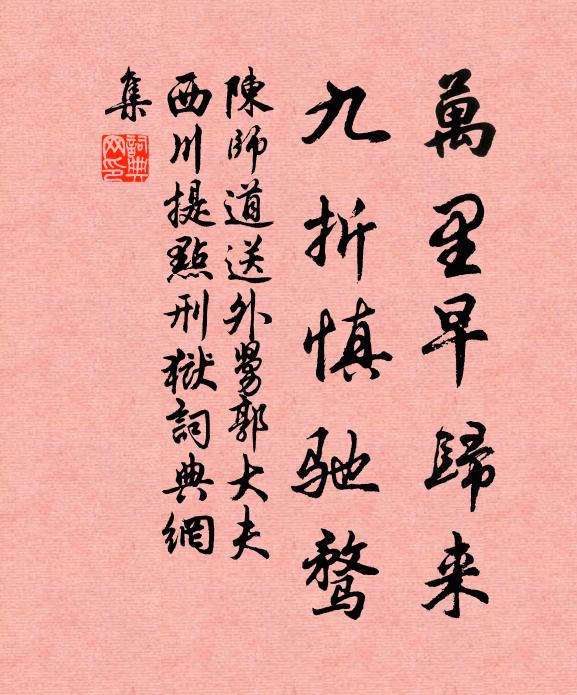 萬里早歸来
九折慎馳騖
陳師道送外舅郭大夫
西川提點刑獄詞典網
集
詞典
网印